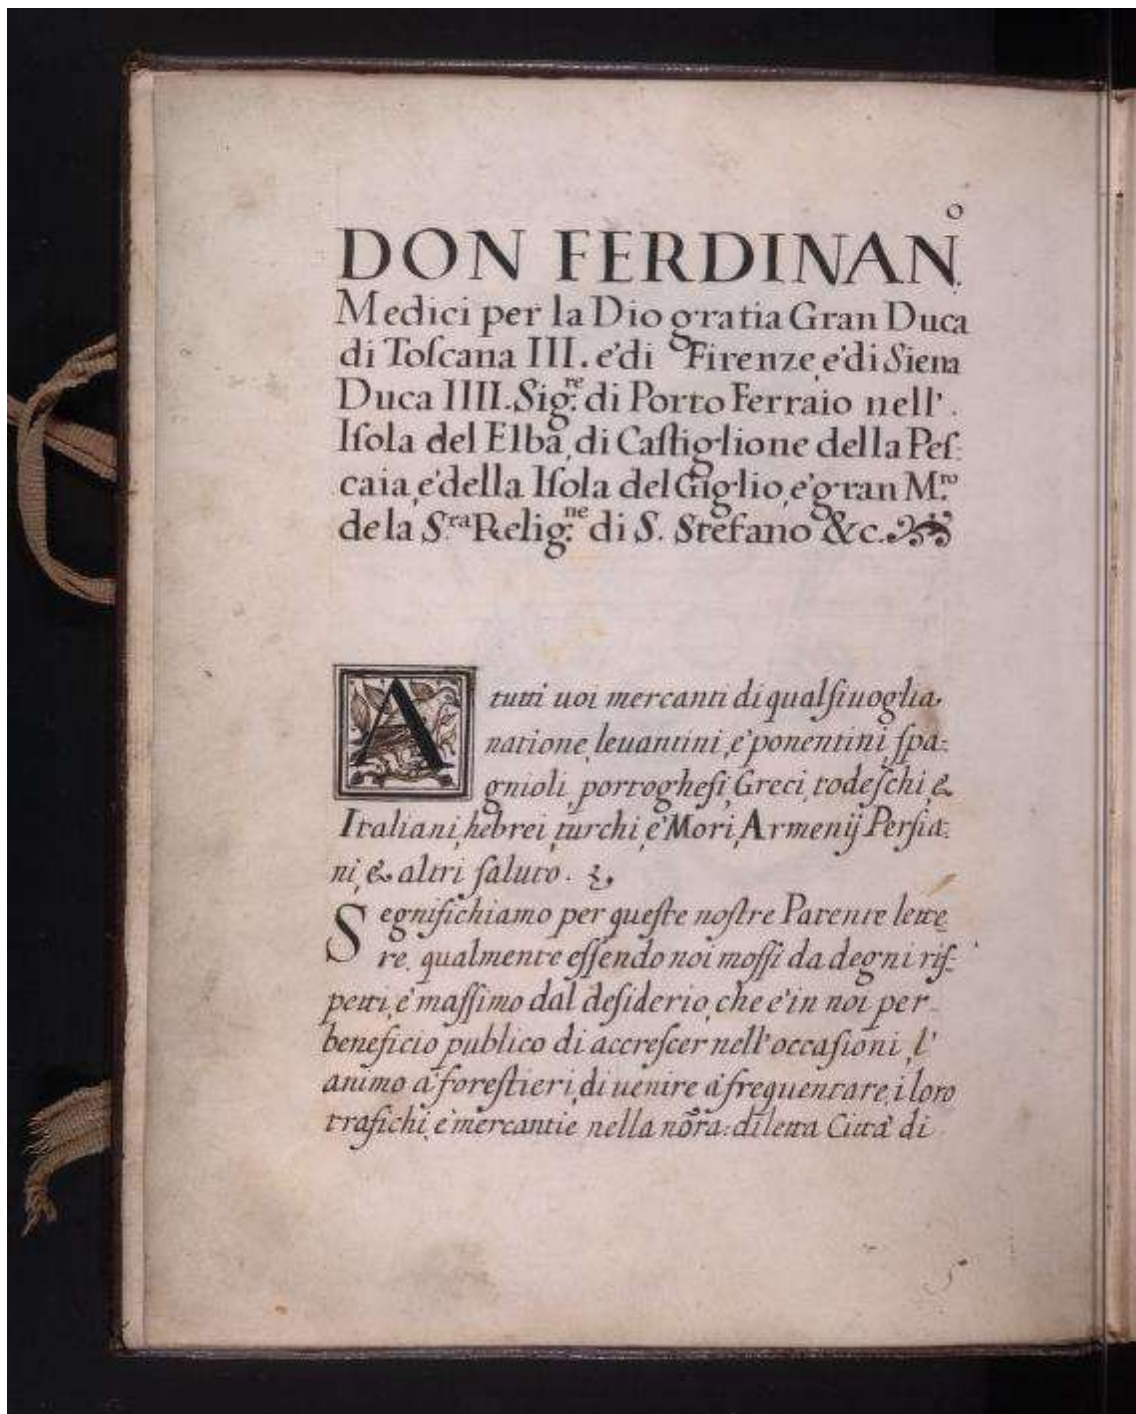 DON FERDINAN.º
Medici per la Dio gratia Gran Duca
di Toſcana III. e' di Firenze, e' di Siena
Duca IIII. Sig.re di Porto Ferraio nell'.
Iſola del Elba, di Caſtiglione della Peſ:
caia, e' della Iſola del Giglio, e' gran M.ro
de la S.ra Relig.ne di S. Stefano &c.
A tutti uoi mercanti di qualſiuoglia
natione, leuantini, e' ponentini, ſpa:
gnioli, portogheſi, Greci, todeſchi, &
Italiani, hebrei, turchi, e' Mori, Armenij Perſia:
ni, & altri ſaluto.
Segnifichiamo per queſte noſtre Patente lette
re. qualmente eſſendo noi moſſi da degni riſ:
petti, e' maſſimo dal deſiderio, che e' in noi per
beneficio publico di accreſcer nell' occaſioni, l'
animo a' foreſtieri, di uenire a' frequentare, i loro
trafichi, e' mercantie nella nõra: diletta Citta' di
5